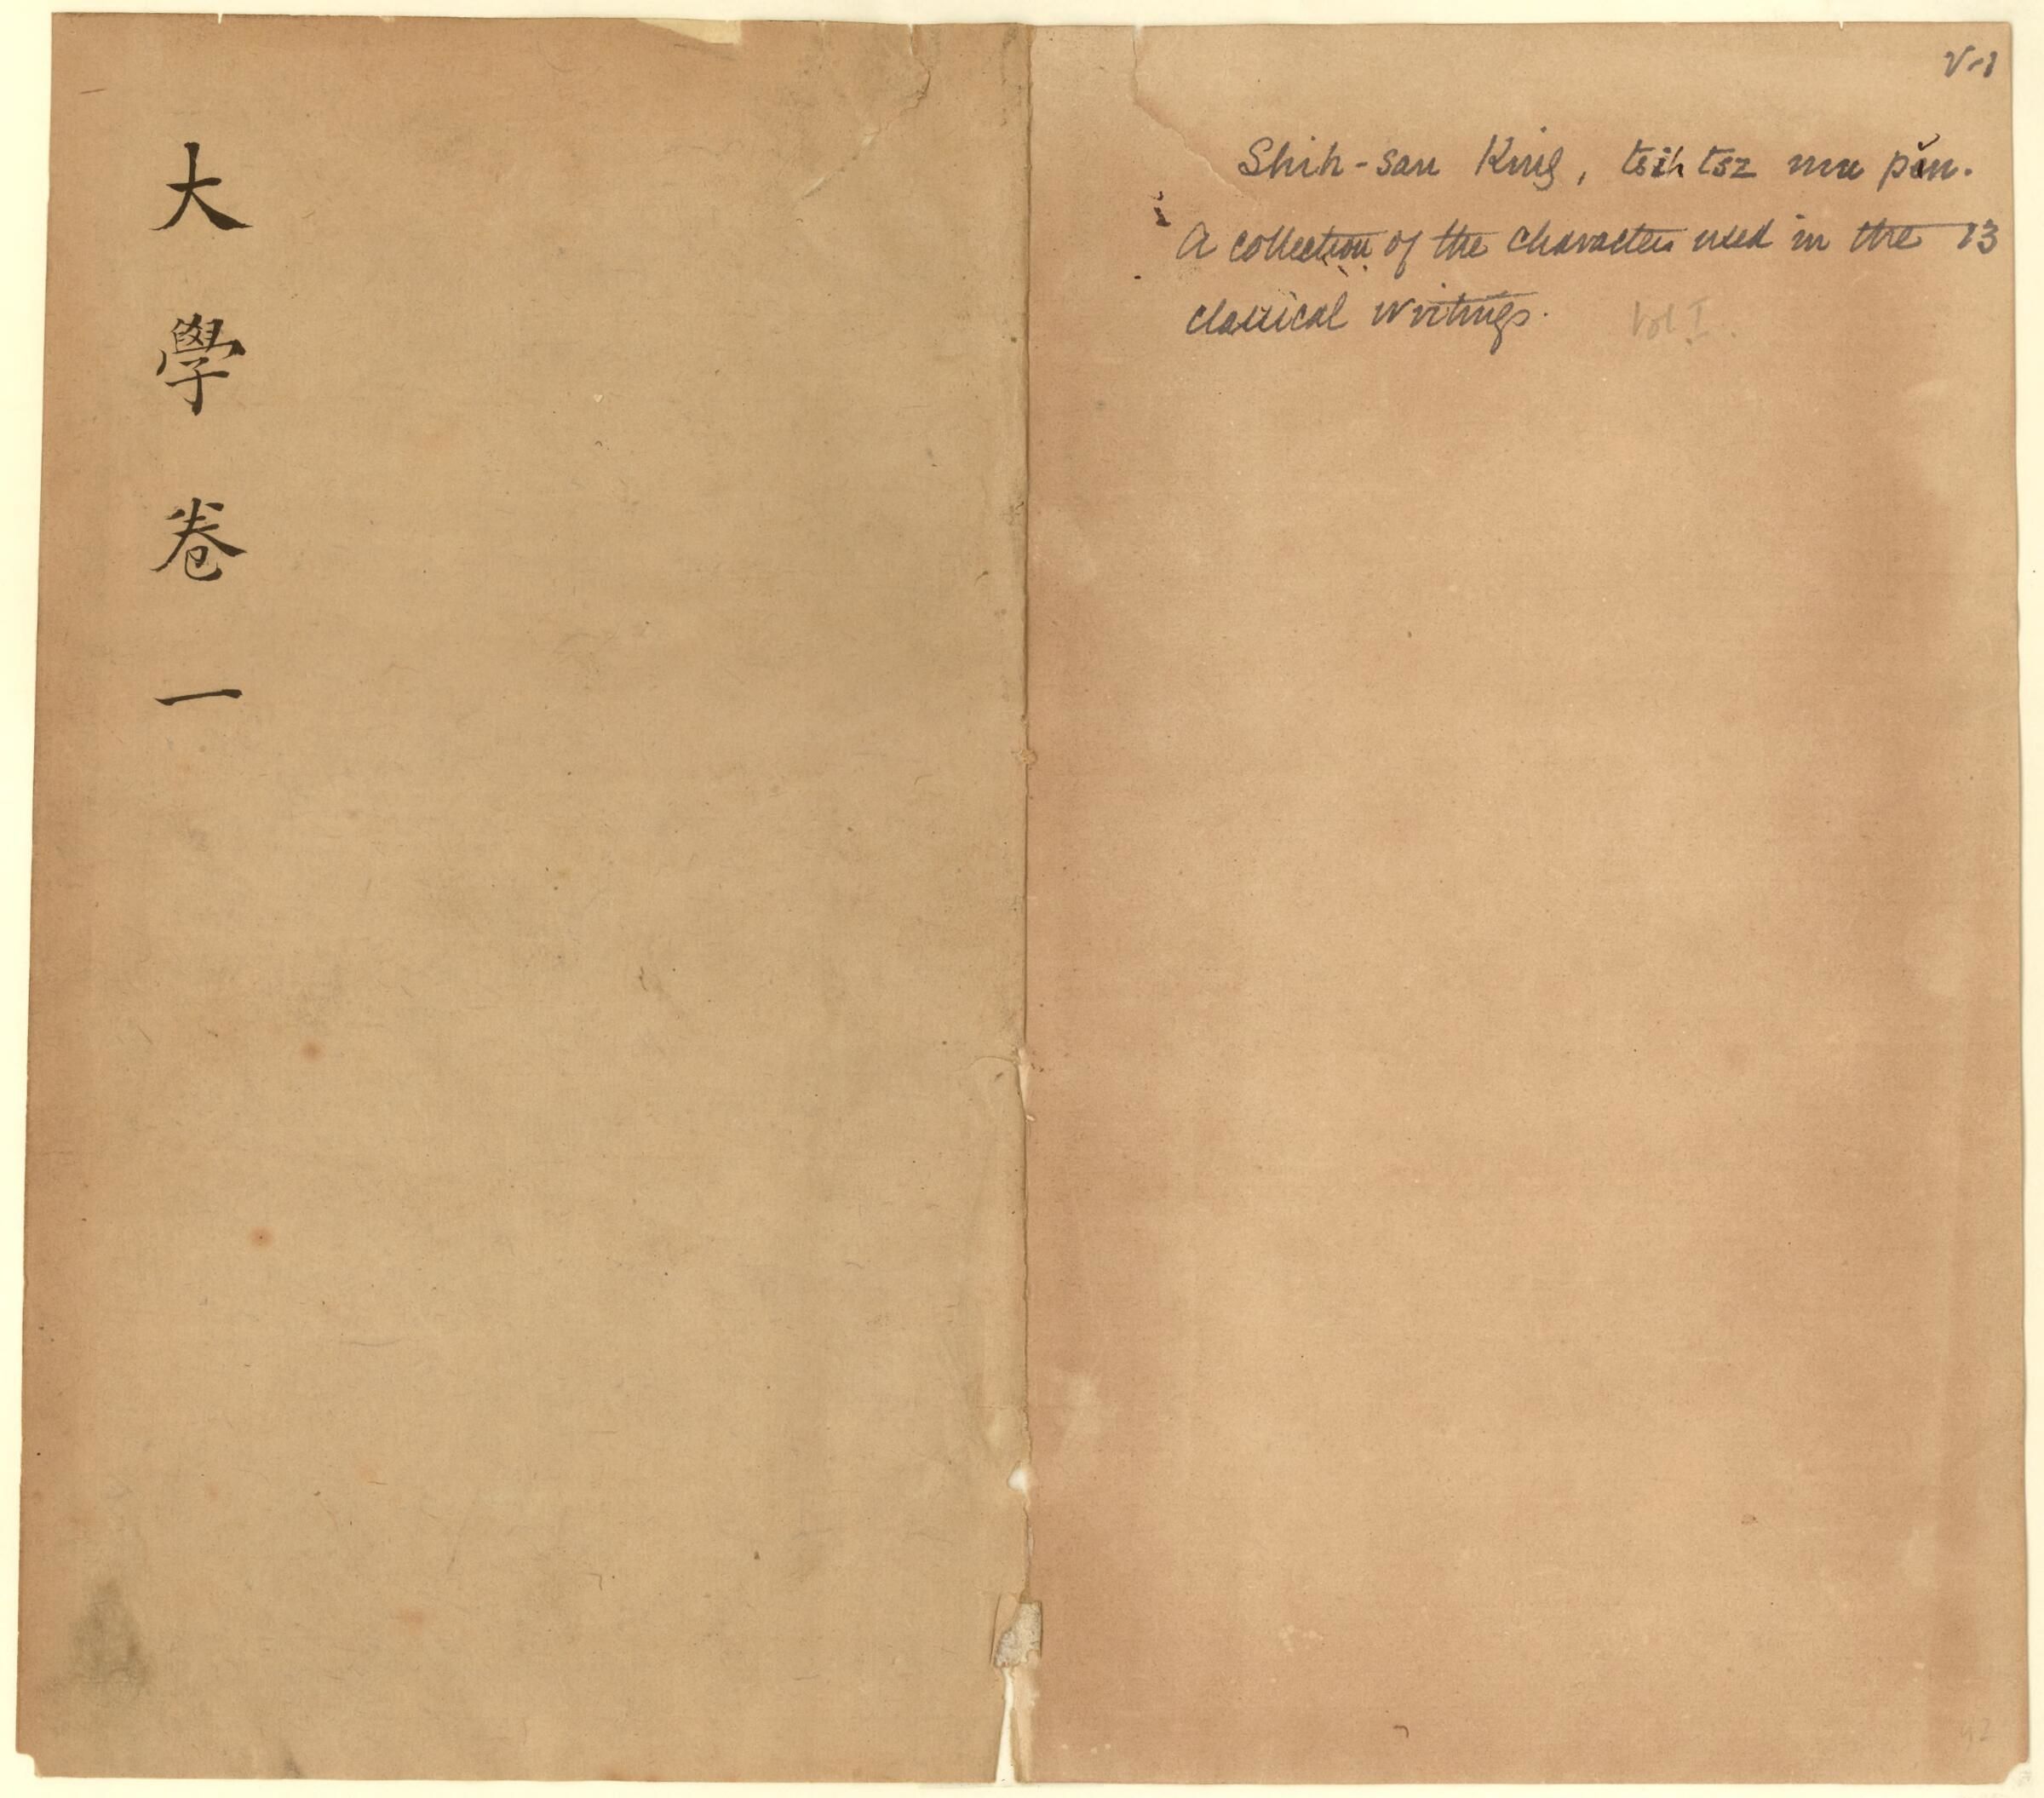 大學卷一
V-1
Shih-san King, tsih tsz mu păn.
A collection of the characters used in the 13
classical writings. Vol I.